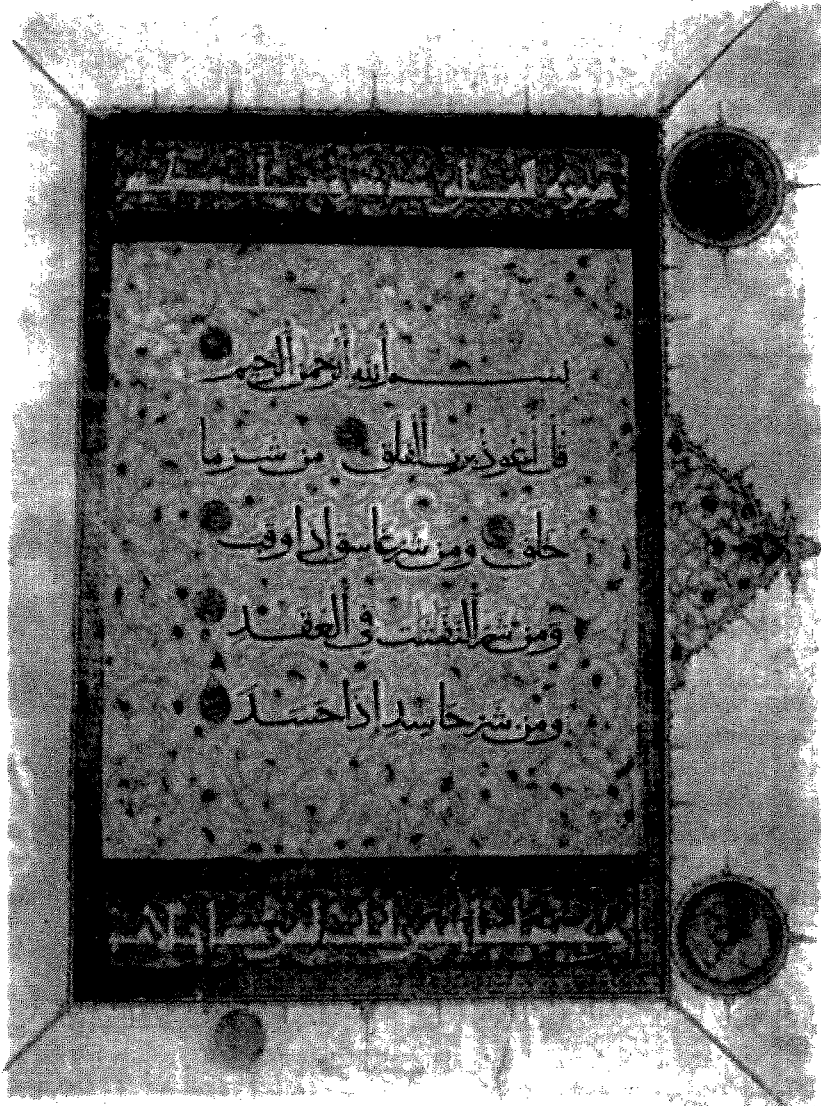 سورة الفلق
بسم الله الرحمن الرحيم
قل أعوذ برب الفلق من شر ما
خلق ومن شر غاسق إذا وقب
ومن شر النفثت في العقد
ومن شر حاسد إذا حسد